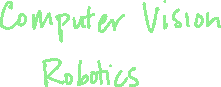 Computer Vision
Robotics